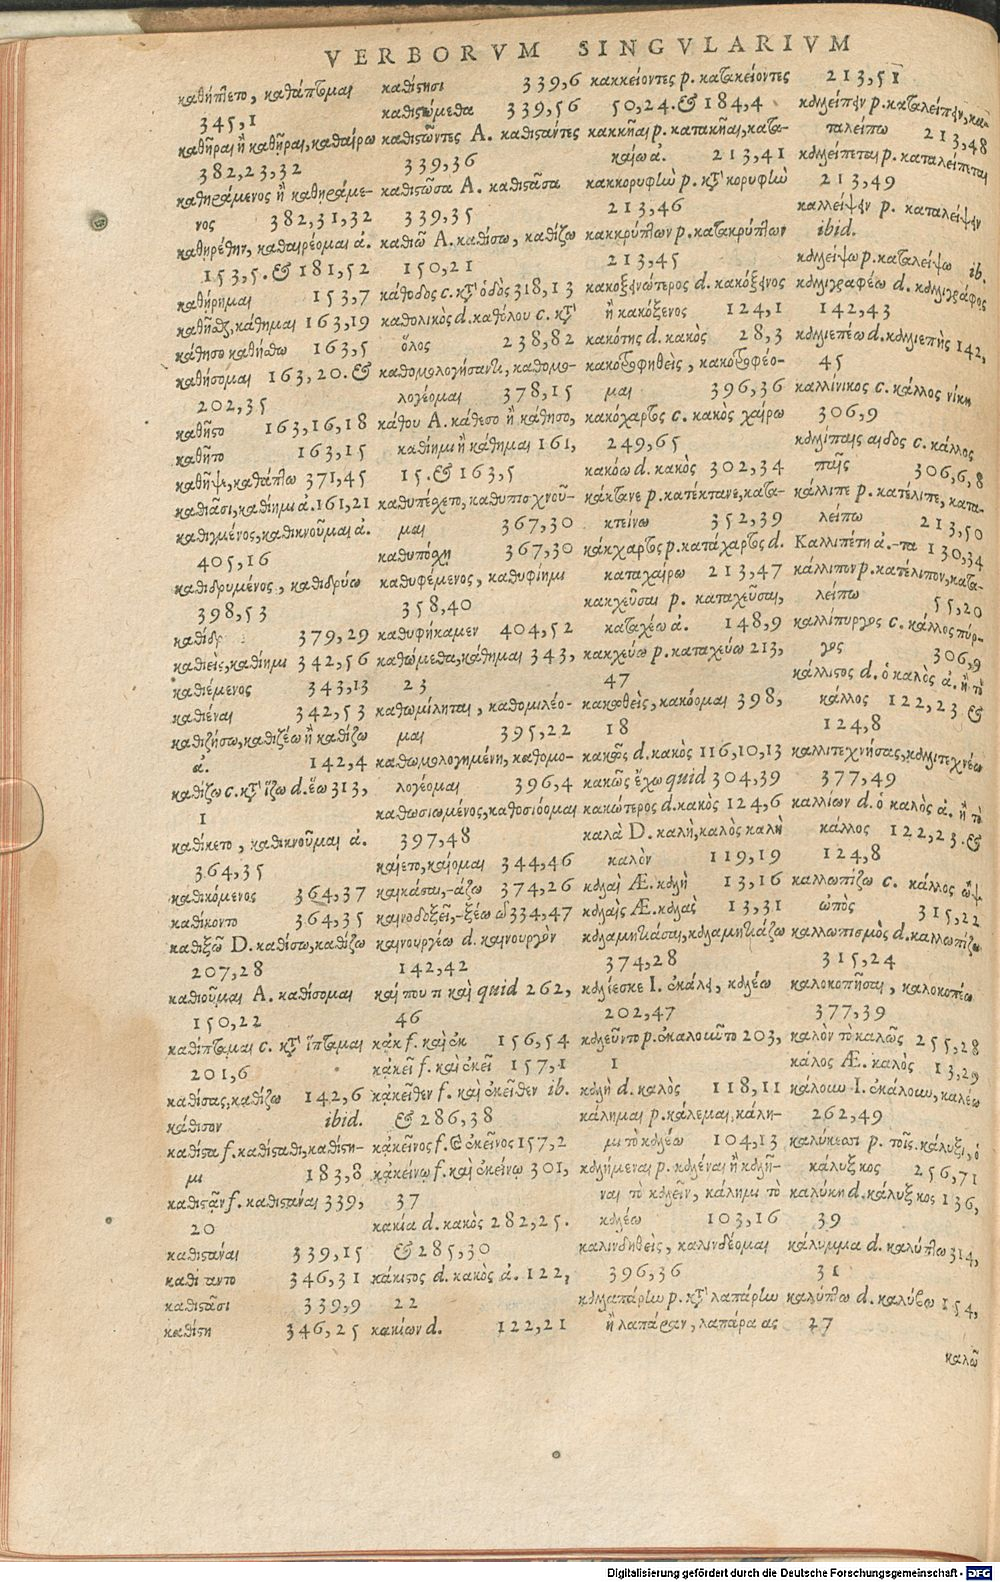 VERBORVM SINGVLARIVM
καθήπτετο, καθάπτομαι
345,1
καθῆραι ἢ καθῇραι, καθαίρω
382,23,32
καθηράμενος ἢ καθῃράμε-
νος 382,31,32
καθῃρέθην, καθαιρέομαι ἀ.
153,5. & 181,52
καθῄρημαι 153,7
καθῆσθαι, κάθημαι 163,19
κάθησο καθήσθω 163,5
καθήσομαι 163,20. &
202,35
καθῆστο 163,16,18
καθῆτο 163,15
καθῆψε, καθάπτω 371,45
καθιᾶσι, καθίημι ἀ. 161,21
καθιγμένος, καθικνοῦμαι ἀ.
405,16
καθιδρυμένος, καθιδρύω
398,53
379,29
καθιεὶς, καθίημι 342,56
καθιέμενος 343,13
καθιέναι 342,53
καθιζήσω, καθιζέω ἢ καθίζω
ἀ. 142,4
καθίζω c. κτ' ἵζω d. ἕω 313,
1
καθίκετο, καθικνοῦμαι ἀ.
364,35
καθικόμενος 364,37
καθίκοντο 364,35
καθιξῶ D. καθίσω, καθίζω
207,28
καθιοῦμαι A. καθίσομαι
150,22
καθίπταμαι c. κτ' ἵπταμαι
201,6
καθίσας, καθίζω 142,6
κάθισον ibid.
καθίστα f. καθίσταθι, καθίστη-
μι 183,8
καθιστᾷν f. καθιστάναι 339,
20
καθιστάναι 339,15
346,31
καθιστᾶσι 339,9
καθίστη 346,25
καθίστησι 339,6
καθιστώμεθα 339,56
καθιστῶντες A. καθιστάντες
339,36
καθιστῶσα A. καθιστᾶσα
339,35
καθιῶ A. καθίσω, καθίζω
150,21
κάθοδος c. κτ' ὁδὸς 318,13
καθολικὸς d. καθόλου c. κτ'
ὅλος 238,82
καθομολογήσαντι, καθομο-
λογέομαι 378,15
κάθου A. κάθεσο ἢ κάθησο,
καθίημι ἢ κάθημαι 161,
15. & 163,5
καθυπέσχετο, καθυπισχνοῦ-
μαι 367,30
καθυπόσχῃ 367,30
καθυφέμενος, καθυφίημι
358,40
καθυφήκαμεν 404,52
καθώμεθα, κάθημαι 343,
23
καθωμίληται, καθομιλέο-
μαι 395,22
καθωμολογημένη, καθομο-
λογέομαι 396,4
καθωσιωμένος, καθοσιόομαι
397,48
καίετο, καίομαι 344,46
374,26
καινοδοξεῖ, -ξέω 334,47
καινουργέω d. καινουργὸν
142,42
καί που τι καὶ quid 262,
46
κἀκ f. καὶ ἐκ 156,54
κἀκεῖ f. καὶ ἐκεῖ 157,1
κἀκεῖθεν f. καὶ ἐκεῖθεν ib.
& 286,38
κἀκεῖνος f. & ἐκεῖνος 157,2
κἀκείνῳ f. καὶ ἐκείνῳ 301,
37
κακία d. κακὸς 282,25.
& 285,30
κάκιστος d. κακὸς ἀ. 122,
22
κακίων d. 122,21
κακκείοντες p. κατακείοντες
50,24. & 184,4
κακκῆαι p. κατακῆαι, κατα-
καίω ἀ. 213,41
κακκορυφὴν p. κτ' κορυφὴν
213,46
κακκρύπτων p. κατακρύπτων
213,45
κακοξεινώτερος d. κακόξεινος
ἢ κακόξενος 124,1
κακότης d. κακὸς 28,3
κακοτροφηθεὶς, κακοτροφέο-
μαι 396,36
κακόχαρτος c. κακὸς χαίρω
249,65
κακόω d. κακὸς 302,34
κάκτανε p. κατέκτανε, κατα-
κτείνω 352,39
κάκχαρτος p. κατάχαρτος d.
καταχαίρω 213,47
κακχεῦσαι p. καταχεῦσαι,
καταχέω ἀ. 148,9
κακχεύω p. καταχεύω 213,
47
κακωθεὶς, κακόομαι 398,
18
κακῶς d. κακὸς 116,10,13
κακῶς ἔχω quid 304,39
κακώτερος d. κακὸς 124,6
καλὰ D. καλὴ, καλὸς καλὴ
καλὸν 119,19
καλαὶ Æ. καλὴ 13,16
καλαῖς Æ. καλὰς 13,31
374,28
καλέεσκε I. ἐκάλει, καλέω
202,47
καλεῦντο p. ἐκαλοῦντο 203,
1
καλὴ d. καλὸς 118,11
κάλημαι p. κάλεμαι, κάλη-
μι τὸ καλέω 104,13
καλήμεναι p. καλέναι ἢ καλῆ-
ναι τὸ καλεῖν, κάλημι τὸ
καλέω 103,16
καλινδηθεὶς, καλινδέομαι
396,36
καλλαπάρην p. κτ' λαπάρην
ἢ λαπάραν, λαπάρα ας
213,51
καλλείπειν p. καταλείπειν, κα-
ταλείπω 213,48
καλλείπεται p. καταλείπεται
213,49
καλλείψειν p. καταλείψειν
ibid.
καλλείψω p. καταλείψω ib.
καλλιγραφέω d. καλλιγράφος
142,43
καλλιεπέω d. καλλιεπὴς 142,
45
καλλίνικος c. κάλλος νίκη
306,9
καλλίπαις αιδος c. κάλλος
παῖς 306,6,8
κάλλιπε p. κατέλιπε, κατα-
λείπω 213,50
Καλλιπέτη ἀ. -τα 130,34
κάλλιπον p. κατέλιπον, κατα-
λείπω 55,20
καλλίπυργος c. κάλλος πύρ-
γος 306,9
κάλλιστος d. ὁ καλὸς ἀ. ἢ τὸ
κάλλος 122,23 &
124,8
καλλιτεχνήσας, καλλιτεχνέω
377,49
καλλίων d. ὁ καλὸς ἀ. ἢ τὸ
κάλλος 122,23. &
124,8
καλλωπίζω c. κάλλος ὢψ
ὠπὸς 315,22
καλλωπισμὸς d. καλλωπίζω
315,24
καλοκοπῆσαι, καλοκοπέω
377,39
καλὸν τὸ καλῶς 255,28
κάλος Æ. καλὸς 13,29
κάλουν I. ἐκάλουν, καλέω
262,49
καλύκεσσι p. τοῖς κάλυξι, ὁ
κάλυξ κος 256,71
καλύκη d. κάλυξ κος 136,
39
κάλυμμα d. καλύπτω 314,
31
καλύπτω d. καλύβω 154,
27
καλῶ
Digitalisierung gefördert durch die Deutsche Forschungsgemeinschaft - DFG